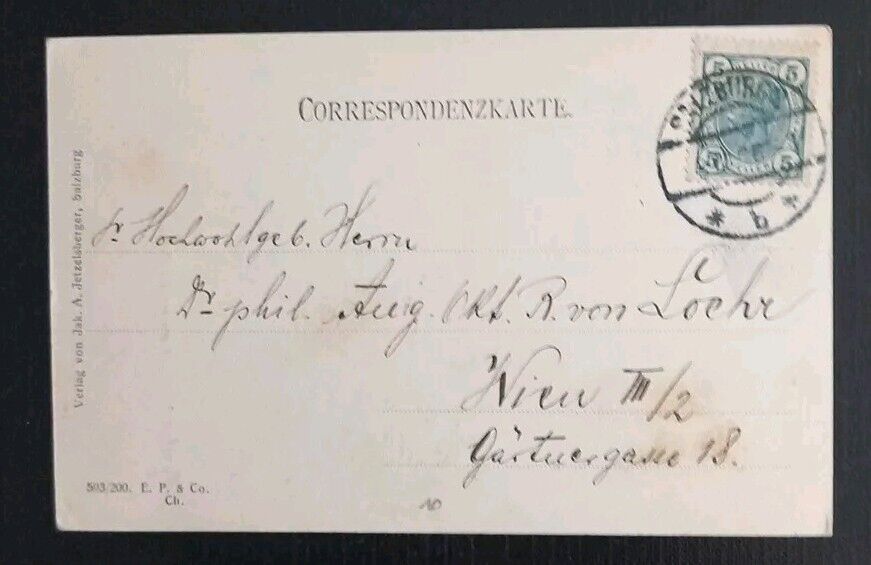 CORRESPONDENZKARTE.
5 5
SALZBURG
5 5
* b *
Sr Hochwohlgeb. Herrn
Dr phil. Aug. Okt. R. von Loehr
Wien III/2
Gärtnergasse 18.
Verlag von Jak. A. Jetzelsberger, Salzburg
593/200. E. P. & Co.
Ch.
10